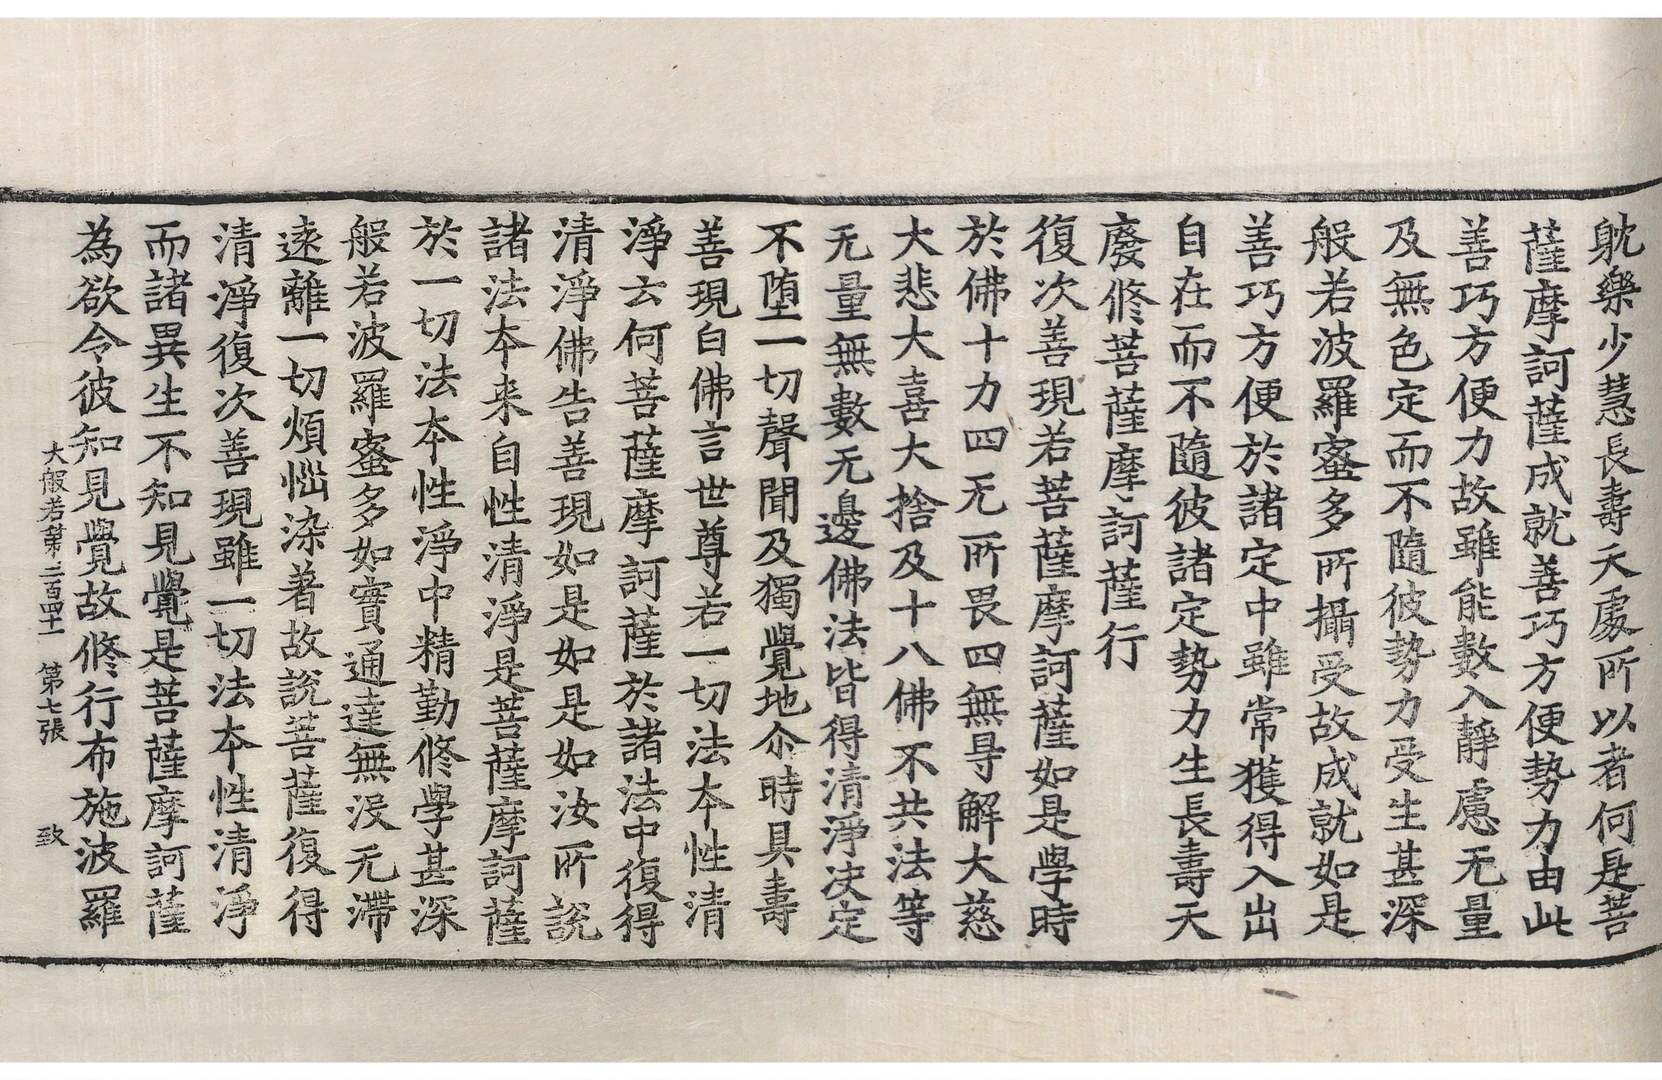 躭樂少慧長壽天處所以者何是菩
薩摩訶薩成就善巧方便勢力由此
善巧方便力故雖能數入靜慮无量
及無色定而不隨彼勢力受生甚深
般若波羅蜜多所攝受故成就如是
善巧方便於諸定中雖常獲得入出
自在而不隨彼諸定勢力生長壽天
廢修菩薩摩訶薩行
復次善現若菩薩摩訶薩如是學時
於佛十力四无所畏四無导解大慈
大悲大喜大捨及十八佛不共法等
无量無數无邊佛法皆得清淨決定
不墮一切聲聞及獨覺地尒時具壽
善現白佛言世尊若一切法本性清
淨云何菩薩摩訶薩於諸法中復得
清淨佛告善現如是如是如汝所說
諸法本来自性清淨是菩薩摩訶薩
於一切法本性淨中精勤修學甚深
般若波羅蜜多如實通達無没无滯
遠離一切煩惱染著故說菩薩復得
清淨復次善現雖一切法本性清淨
而諸異生不知見覺是菩薩摩訶薩
為欲令彼知見覺故修行布施波羅
大般若第三百四十一 第七張 致